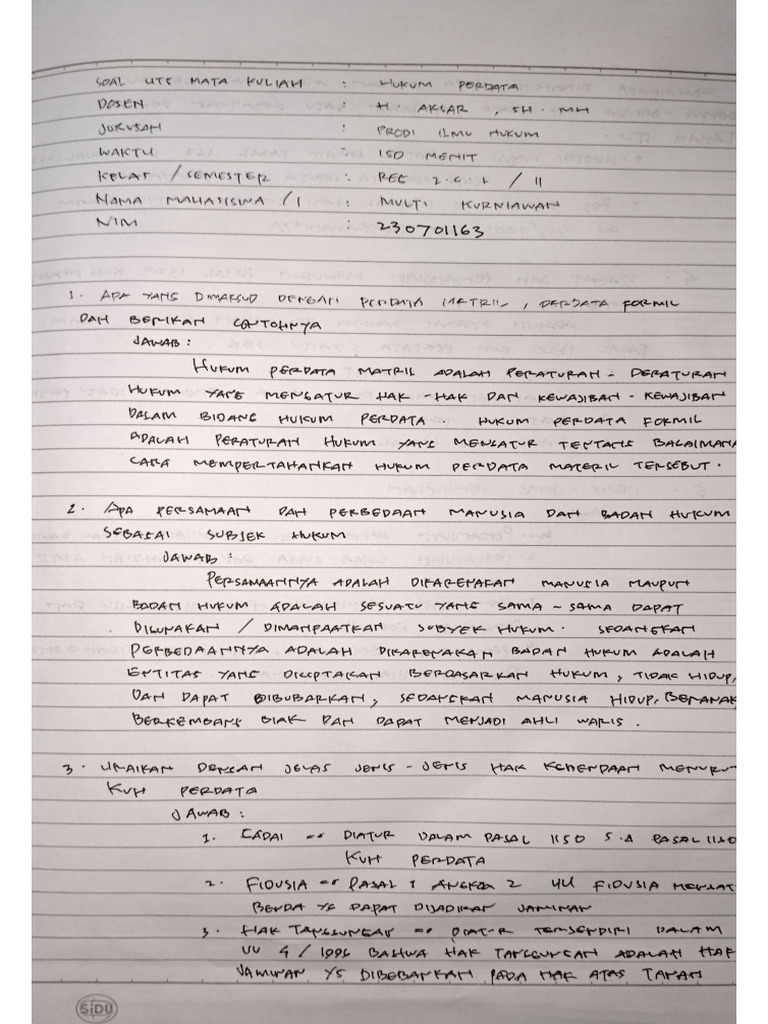 SOAL UTS MATA KULIAH : HUKUM PERDATA
DOSEN : H. AKSAR, SH. MH
JURUSAN : PRODI ILMU HUKUM
WAKTU : 150 MENIT
KELAS / SEMESTER : REG 2.C.1 / II
NAMA MAHASISWA / I : MULTI KURNIAWAN
NIM : 230701163
1. APA YANG DIMAKSUD DENGAN PERDATA MATRIIL, PERDATA FORMIL
DAN BERIKAN CONTOHNYA
JAWAB :
HUKUM PERDATA MATRIL ADALAH PERATURAN - PERATURAN
HUKUM YANG MENGATUR HAK - HAK DAN KEWAJIBAN - KEWAJIBAN
DALAM BIDANG HUKUM PERDATA. HUKUM PERDATA FORMIL
ADALAH PERATURAN HUKUM YANG MENGATUR TENTANG BAGAIMANA
CARA MEMPERTAHANKAN HUKUM PERDATA MATERIL TERSEBUT.
2. APA PERSAMAAN DAN PERBEDAAN MANUSIA DAN BADAN HUKUM
SEBAGAI SUBJEK HUKUM
JAWAB :
PERSAMAANNYA ADALAH DIKARENAKAN MANUSIA MAUPUN
BADAN HUKUM ADALAH SESUATU YANG SAMA - SAMA DAPAT
DIGUNAKAN / DIMANFAATKAN SUBYEK HUKUM. SEDANGKAN
PERBEDAANNYA ADALAH DIKARENAKAN BADAN HUKUM ADALAH
ENTITAS YANG DICIPTAKAN BERDASARKAN HUKUM, TIDAK HIDUP,
DAN DAPAT DIBUBARKAN, SEDANGKAN MANUSIA HIDUP, BERANAK
BERKEMBANG BIAK DAN DAPAT MENJADI AHLI WARIS.
3. URAIKAN DENGAN JELAS JENIS - JENIS HAK KEBENDAAN MENURUT
KUH PERDATA
JAWAB :
1. GADAI => DIATUR DALAM PASAL 1150 S.d PASAL
KUH PERDATA
2. FIDUSIA => PASAL 1 ANGKA 2 UU FIDUSIA
BENDA YG DAPAT DIJADIKAN JAMINAN
3. HAK TANGGUNGAN => DIATUR TERSENDIRI DALAM
UU 4 / 1996 BAHWA HAK TANGGUNGAN ADALAH HAK
JAMINAN YG DIBEBANKAN PADA HAK ATAS TANAH
SiDU